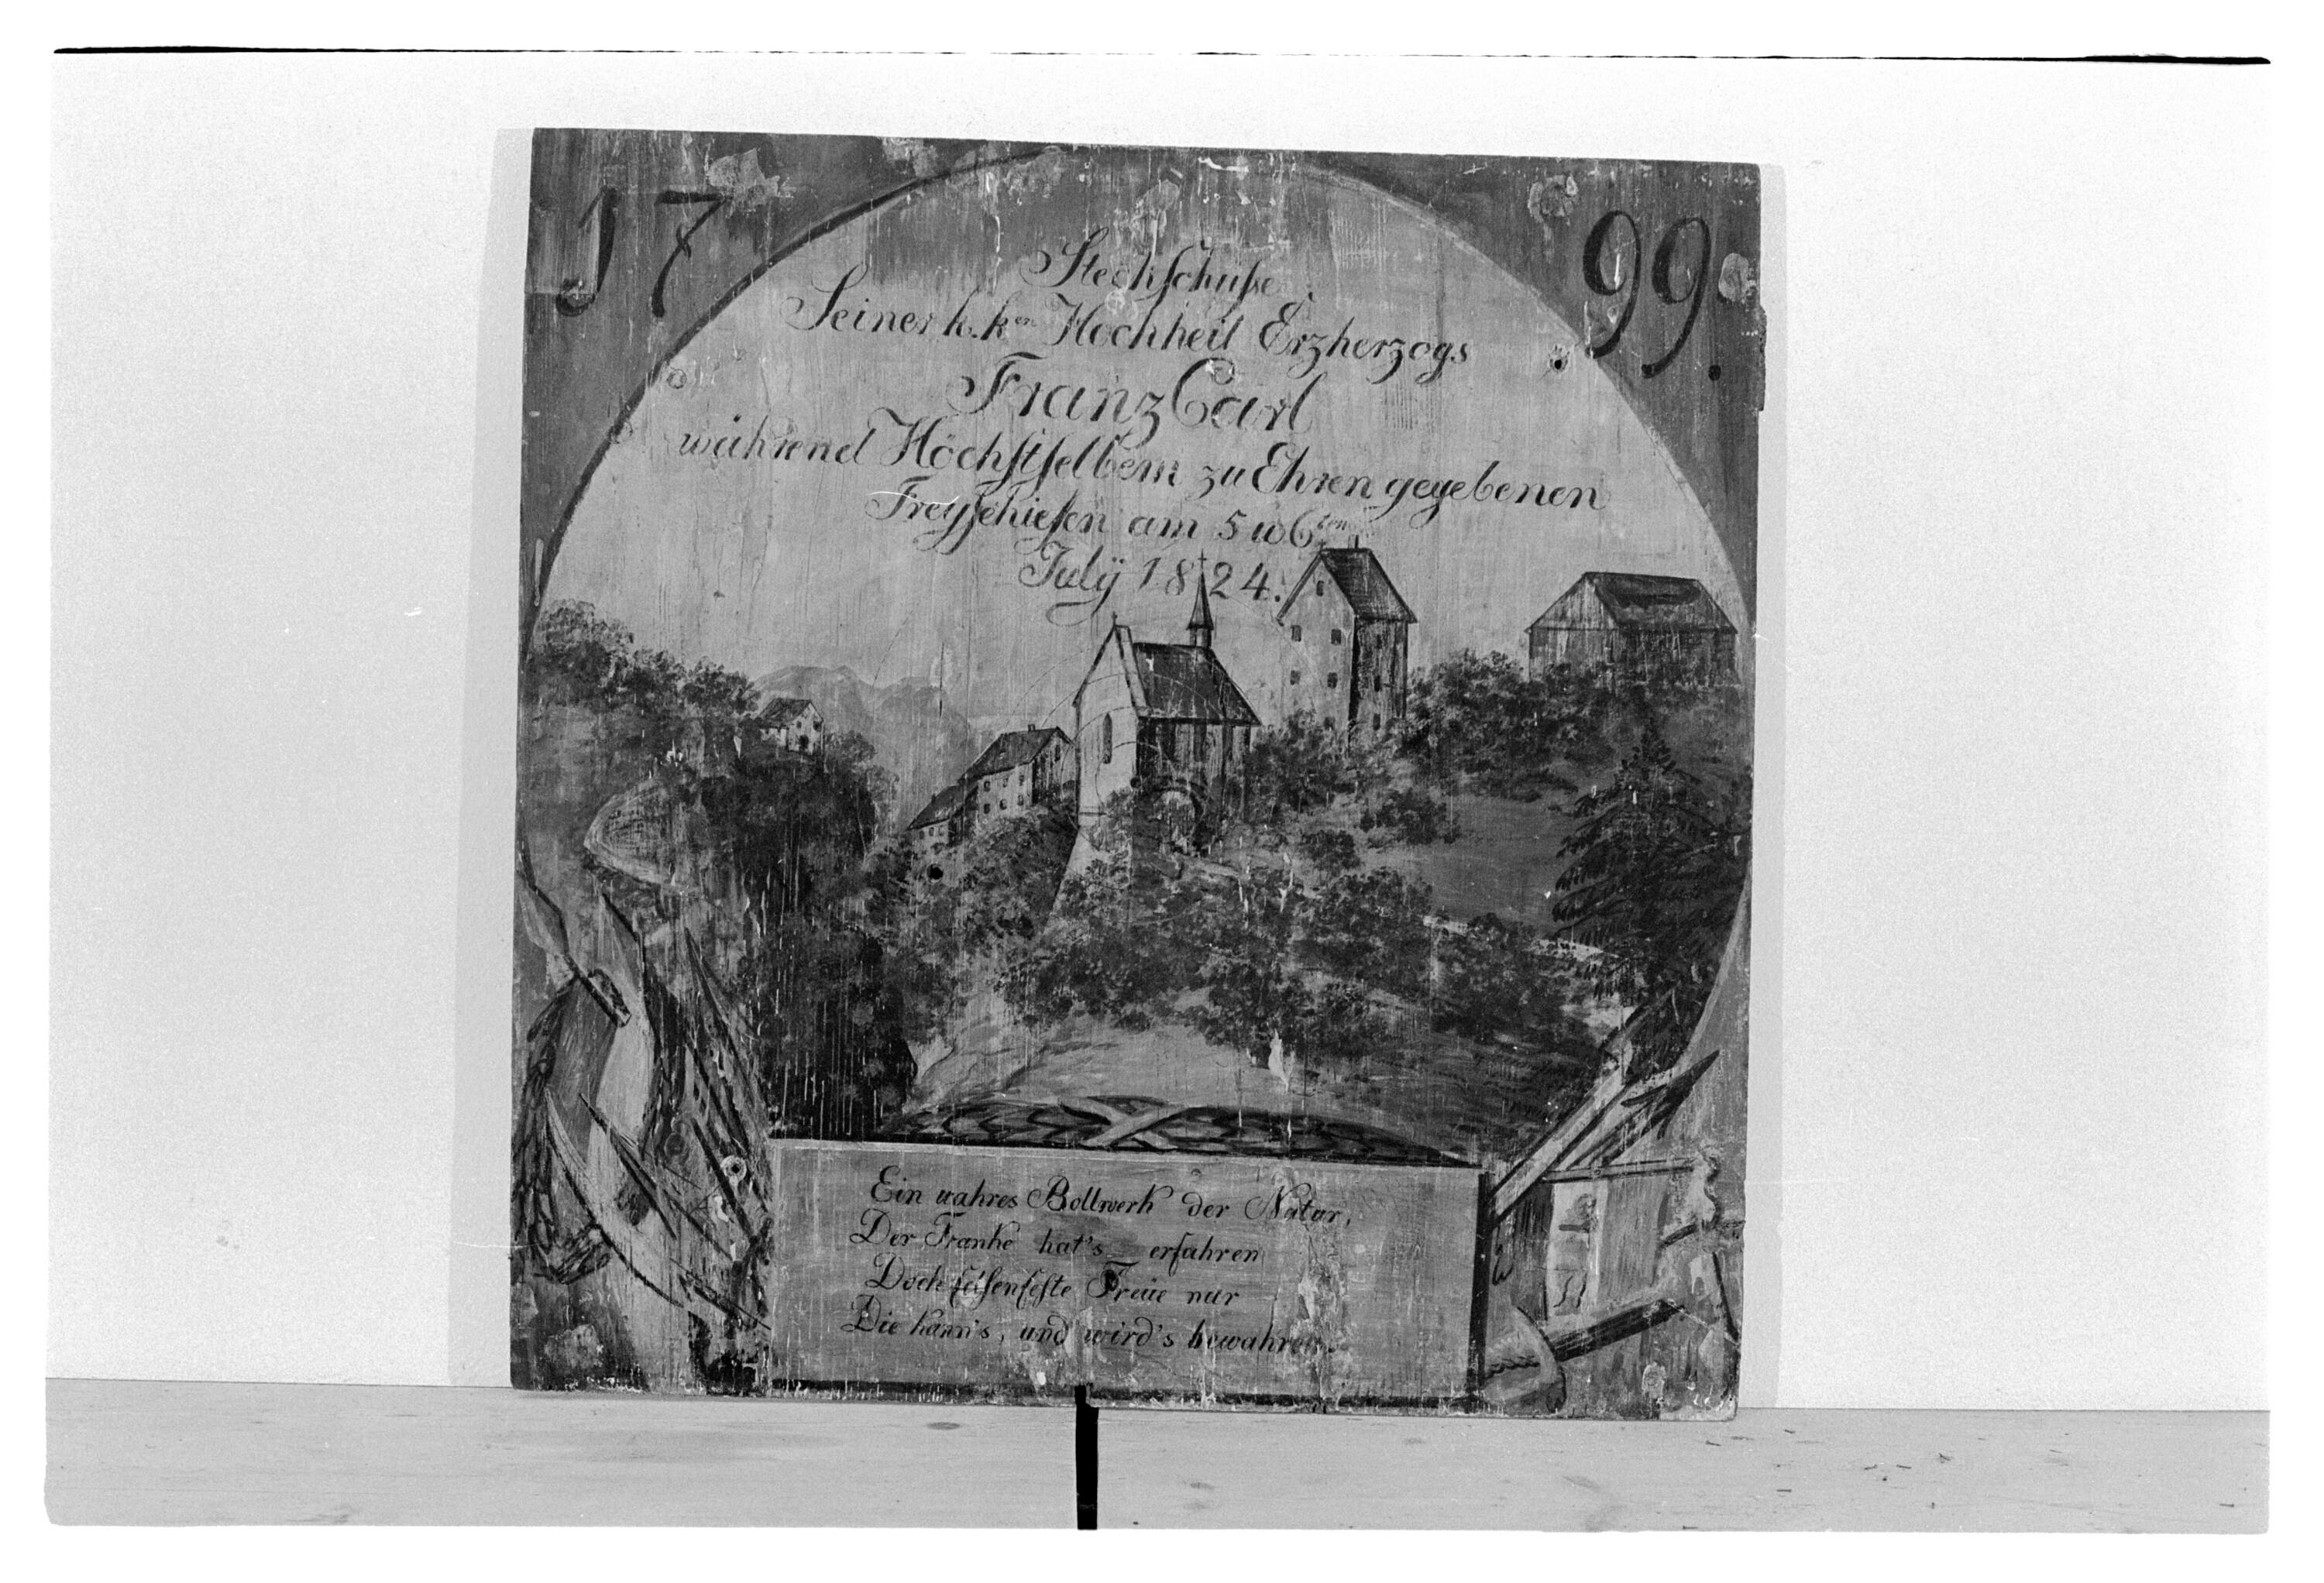 17 99.
Stechschüße
Seiner k. ken Hochheit Erzherzogs
Franz Carl
während Höchstselbem zu Ehren gegebenen
Freyschießen am 5 u 6ten
Julÿ 1824.
Ein wahres Bollwerk der Natur,
Der Franke hat's erfahren
Doch felsenfeste Treue nur
Die kann's, und wird's bewahren.